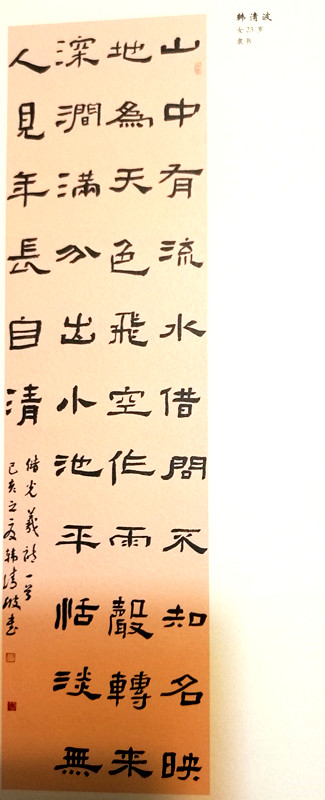 山中有流水借問不知名映
地為天色飛空作雨聲轉来
深澗滿分出小池平恬淡無
人見年長自清
儲光羲詩一首
己亥之夏韩清波書
韩清波
女 23 岁
隶书